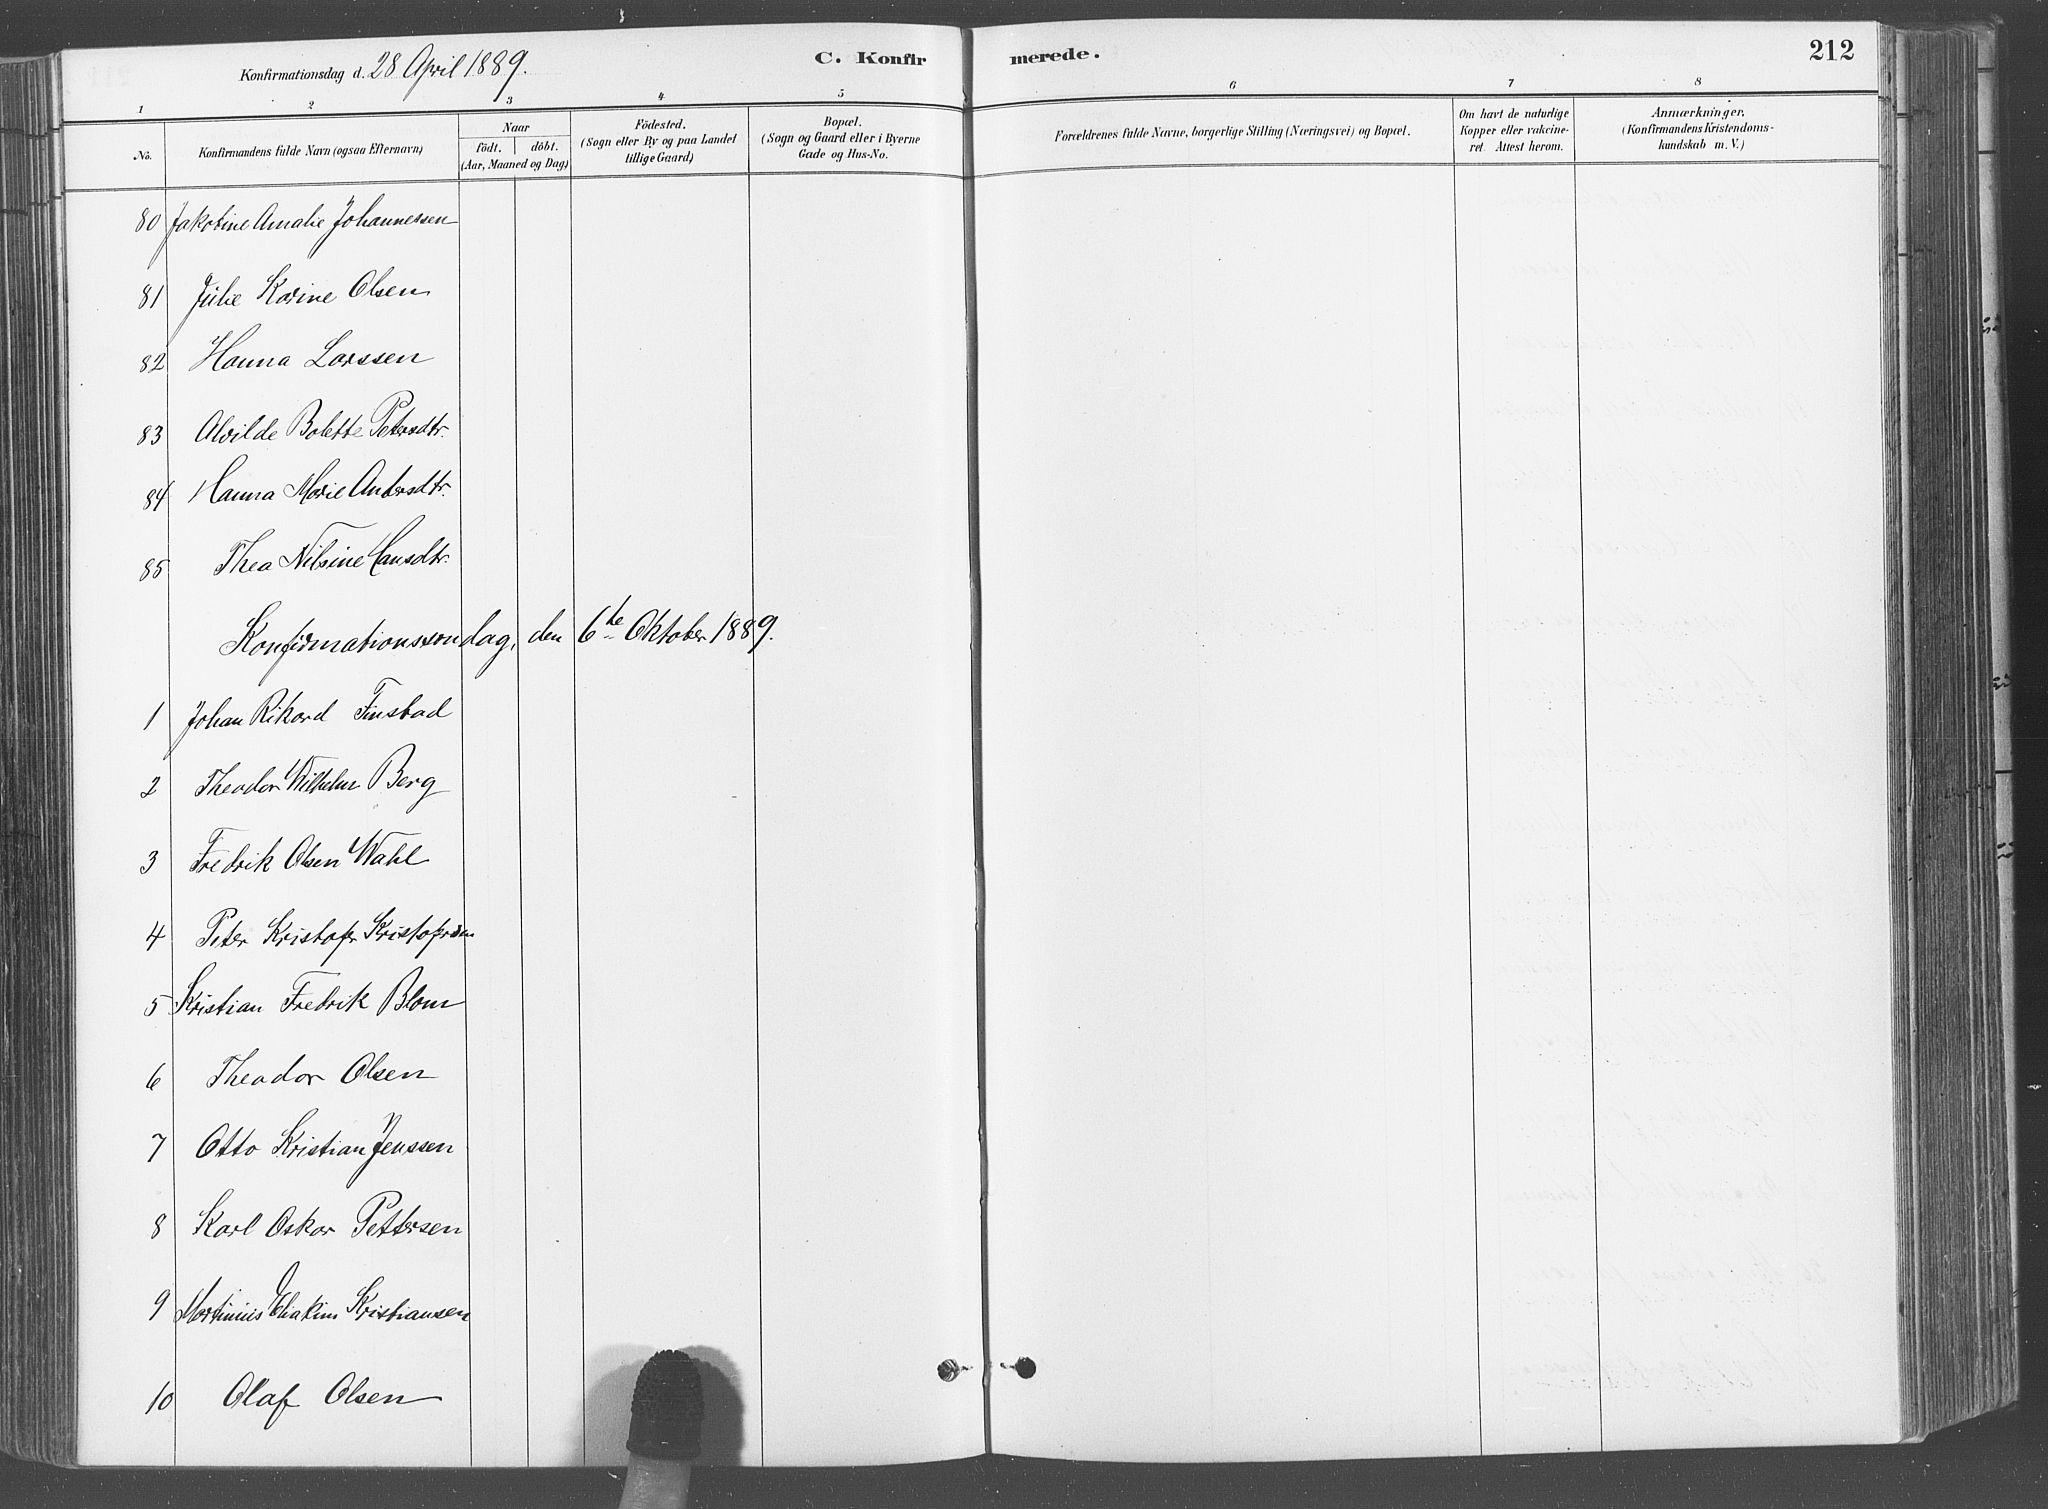 Konfirmationsdag d. 28 April 1889.
C. Konfirmerede.
212
1 2 3 4 5 6 7 8
No.
Konfirmandens fulde Navn (ogsaa Efternavn)
Naar
födt. döbt.
(Aar, Maaned og Dag)
Födested.
(Sogn eller By og paa Landet
tillige Gaard)
Bopæl.
(Sogn og Gaard eller i Byerne
Gade og Hus-No.
Forældrenes fulde Navne, borgerlige Stilling (Næringsvei) og Bopæl.
Om havt de naturlige
Kopper eller vakcine-
ret. Attest herom.
Anmærkninger.
(Konfirmandens Kristendoms-
kundskab m. V.)
80 Jakobine Amalie Johannessen
81 Julie Karine Olsen
82 Hanna Larssen
83 Alvilde Bolette Petersdtr.
84 Hanna Marie Andersdtr.
85 Thea Nilsine Hansdtr.
Konfirmationssondag, den 6te Oktober 1889.
1 Johan Rikard Finstad
2 Theodor Wilhelm Berg
3 Fredrik Olsen Wahl
4 Peter Kristofer Kristofersen
5 Kristian Fredrik Blom
6 Theodor Olsen
7 Otto Kristian Jenssen
8 Karl Oskar Pettersen
9 Martinius Kristiansen
10 Olaf Olsen